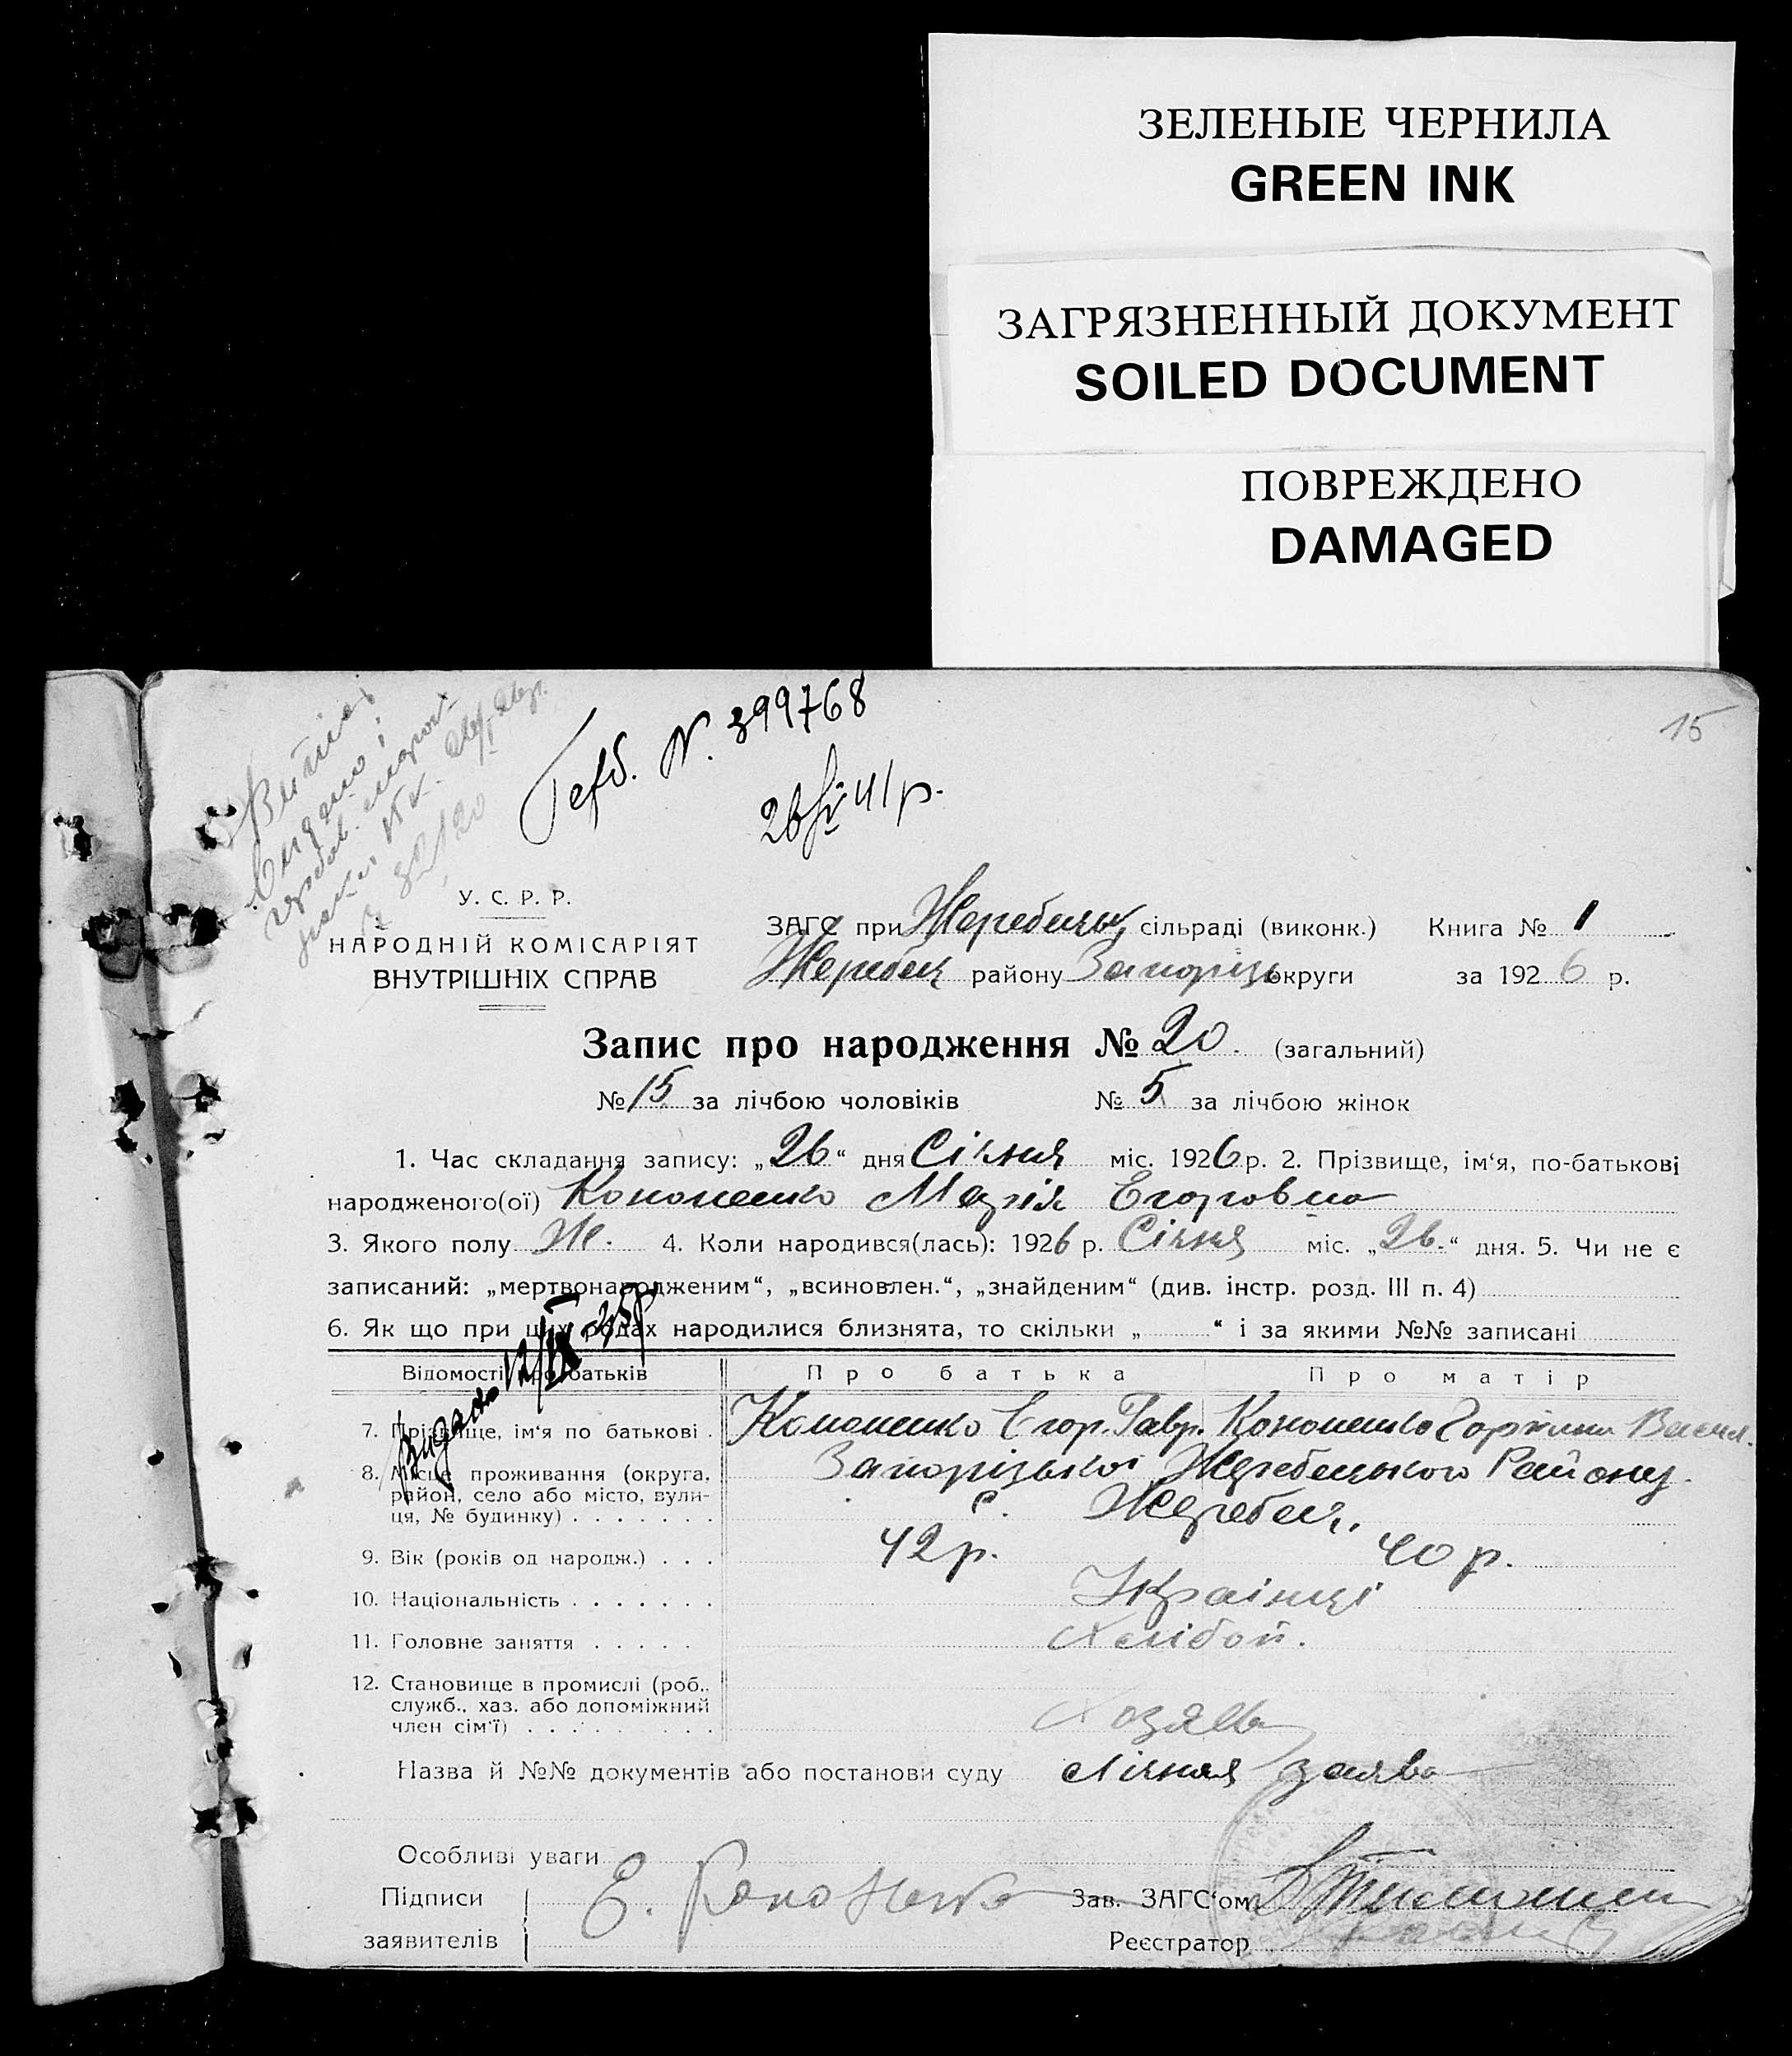 ЗЕЛЕНЫЕ ЧЕРНИЛА
GREEN INK
ЗАГРЯЗНЕННЫЙ ДОКУМЕНТ
SOILED DOCUMENT
ПОВРЕЖДЕНО
DAMAGED
15
Герб. N. 399768
26/IV 41 р.
У. С. Р. Р.
НАРОДНІЙ КОМІСАРІЯТ
ВНУТРІШНІХ СПРАВ
ЗАГС при Жеребецьк сільраді (виконк.) Книга № 1
Жеребец району Запорізь округи за 1926 р.
Запис про народження № 20. (загальний)
№ 15 за лічбою чоловіків № 5 за лічбою жінок
1. Час складання запису: „26“ дня Січня міс. 1926 р. 2. Прізвище, ім‘я, по-батькові
народженого(ої) Кононенко Марія Егоровна
3. Якого полу Ж. 4. Коли народився(лась): 1926 р. Січня міс. „26.“ дня. 5. Чи не є
записаний: „мертвонародженим“, „всиновлен.“, „знайденим“ (див. інстр. розд. III п. 4)
6. Як що при цих родах народилися близнята, то скільки „ “ і за якими №№ записані
Видано
Відомості про батьків Про батька Про матір
7. Прізвище, ім‘я по батькові . Кононенко Егор. Гавр. Кононенко Горпина Васил.
8. Місце проживання (округа, Запорізької Жеребецького Району
район, село або місто, вули-
ця, № будинку) . . . . . . . с. Жеребец.
9. Вік (років од народж.) . . . 42 р. 40 р.
10. Національність . . . . . . . Українці
11. Головне заняття . . . . . Хлібоп.
12. Становище в промислі (роб.,
служб., хаз. або допоміжний
член сім‘ї) . . . . . . . . Хозяев
Назва й №№ документів або постанови суду лічная заява
Особливі уваги
Підписи Е. Кононенко Зав. ЗАГС‘ом
заявителів Реєстратор